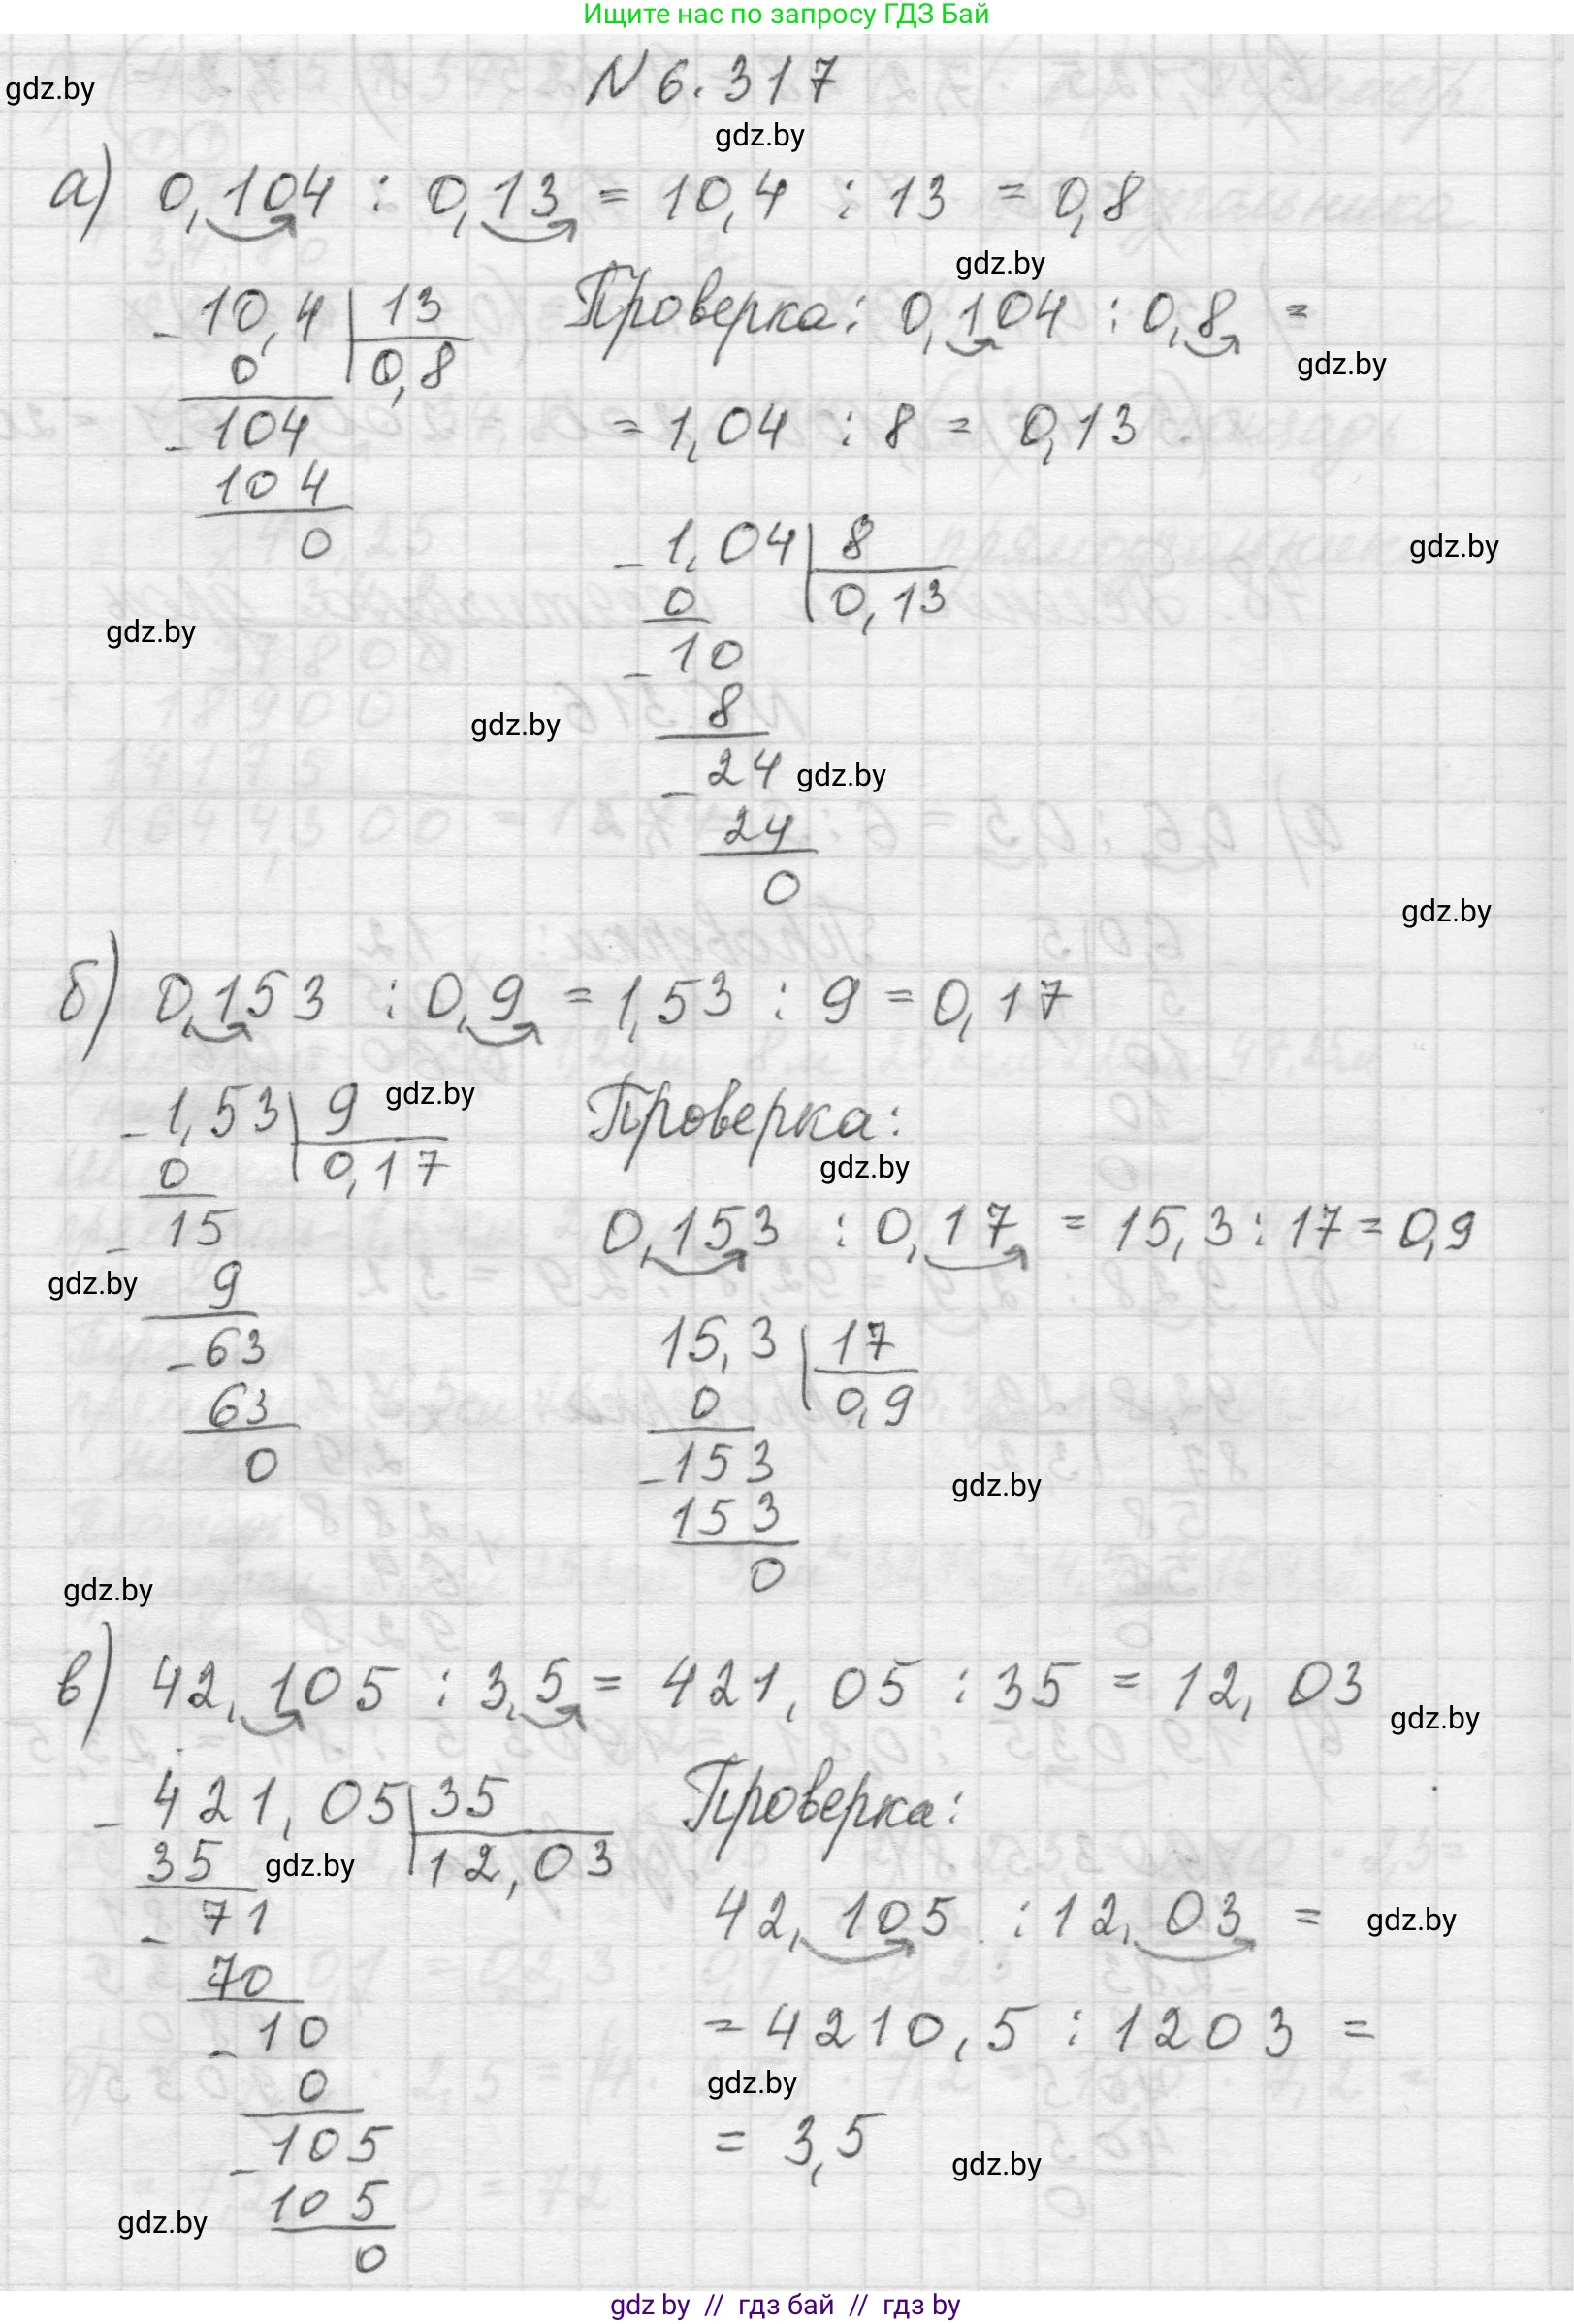 Ищите нас по запросу ГДЗ Бай
N 6.317
gdz.by
gdz.by
а) 0,104 : 0,13 = 10,4 : 13 = 0,8
gdz.by
- 10,4 | 13
0 | 0,8
- 104
104
0
Проверка: 0,104 : 0,8 =
gdz.by
= 1,04 : 8 = 0,13
- 1,04 | 8
0 | 0,13
- 10
8
- 24
24
0
gdz.by
gdz.by
gdz.by
gdz.by
gdz.by
б) 0,153 : 0,9 = 1,53 : 9 = 0,17
- 1,53 | 9
0 | 0,17
- 15
9
- 63
63
0
gdz.by
gdz.by
Проверка:
gdz.by
0,153 : 0,17 = 15,3 : 17 = 0,9
15,3 | 17
0 | 0,9
- 153
153
0
gdz.by
gdz.by
в) 42,105 : 3,5 = 421,05 : 35 = 12,03
gdz.by
- 421,05 | 35
35 | 12,03
- 71
70
- 10
0
- 105
105
0
gdz.by
gdz.by
Проверка:
42,105 : 12,03 =
gdz.by
= 4210,5 : 1203 =
gdz.by
= 3,5
gdz.by
gdz by // гдз бай // гдз by